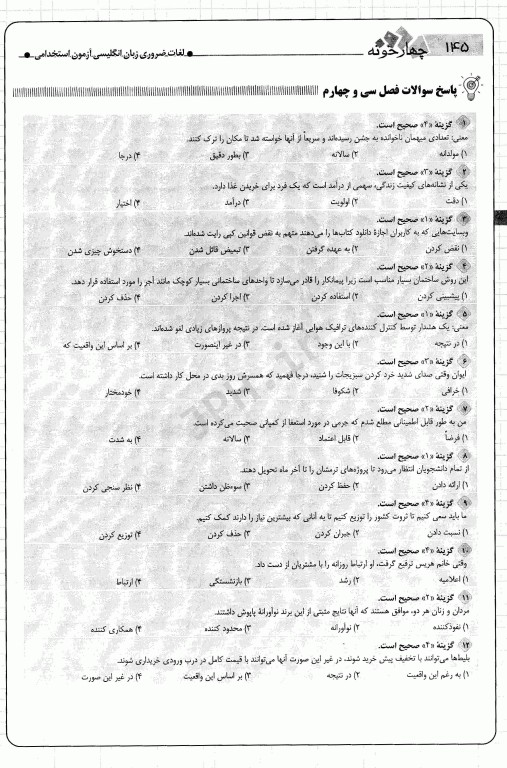 ۱۴۵ چهارخونه لغات ضروری زبان انگلیسی آزمون استخدامی
پاسخ سوالات فصل سی و چهارم
۱ گزینهٔ «۴» صحیح است.
معنی: تعدادی میهمان ناخوانده به جشن رسیده‌اند و سریعاً از آنها خواسته شد تا مکان را ترک کنند.
۱) مولدانه ۲) سالانه ۳) بطور دقیق ۴) درجا
۲ گزینهٔ «۳» صحیح است.
یکی از نشانه‌های کیفیت زندگی، سهمی از درآمد است که یک فرد برای خریدن غذا دارد.
۱) دقت ۲) اولویت ۳) درآمد ۴) اختیار
۳ گزینهٔ «۱» صحیح است.
وبسایت‌هایی که به کاربران اجازهٔ دانلود کتاب‌ها را می‌دهند متهم به نقض قوانین کپی رایت شده‌اند.
۱) نقض کردن ۲) به عهده گرفتن ۳) تبعیض قائل شدن ۴) دستخوش چیزی شدن
۴ گزینهٔ «۲» صحیح است.
این روش ساختمان بسیار مناسب است زیرا پیمانکار را قادر می‌سازد تا واحدهای ساختمانی بسیار کوچک مانند آجر را مورد استفاده قرار دهد.
۱) پیشبینی کردن ۲) استفاده کردن ۳) اجرا کردن ۴) حذف کردن
۵ گزینهٔ «۱» صحیح است.
معنی: یک هشدار توسط کنترل کننده‌های ترافیک هوایی آغاز شده است. در نتیجه پروازهای زیادی لغو شده‌اند.
۱) در نتیجه ۲) با این وجود ۳) در غیر اینصورت ۴) بر اساس این واقعیت که
۶ گزینهٔ «۳» صحیح است.
ایوان وقتی صدای شدید خرد کردن سبزیجات را شنید، درجا فهمید که همسرش روز بدی در محل کار داشته است.
۱) خرافی ۲) شکوفا ۳) شدید ۴) خودمختار
۷ گزینهٔ «۲» صحیح است.
من به طور قابل اطمینانی مطلع شدم که جرمی در مورد استعفا از کمپانی صحبت می‌کرده است.
۱) فرضاً ۲) قابل اعتماد ۳) سالانه ۴) به شدت
۸ گزینهٔ «۱» صحیح است.
از تمام دانشجویان انتظار می‌رود تا پروژه‌های ترمشان را تا آخر ماه تحویل دهند.
۱) ارائه دادن ۲) حفظ کردن ۳) سوءظن داشتن ۴) نظر سنجی کردن
۹ گزینهٔ «۴» صحیح است.
ما باید سعی کنیم تا ثروت کشور را توزیع کنیم تا به آنانی که بیشترین نیاز را دارند کمک کنیم.
۱) نسبت دادن ۲) جبران کردن ۳) حذف کردن ۴) توزیع کردن
۱۰ گزینهٔ «۴» صحیح است.
وقتی خانم هریس ترفیع گرفت، او ارتباط روزانه را با مشتریان از دست داد.
۱) اعلامیه ۲) رشد ۳) بازنشستگی ۴) ارتباط
۱۱ گزینهٔ «۲» صحیح است.
مردان و زنان هر دو، موافق هستند که آنها نتایج مثبتی از این برند نوآورانهٔ پاپوش داشتند.
۱) نفوذکننده ۲) نوآورانه ۳) محدود کننده ۴) همکاری کننده
۱۲ گزینهٔ «۴» صحیح است.
بلیط‌ها می‌توانند با تخفیف پیش خرید شوند، در غیر این صورت آنها می‌توانند با قیمت کامل در درب ورودی خریداری شوند.
۱) به رغم این واقعیت ۲) در نتیجه ۳) بر اساس این واقعیت ۴) در غیر این صورت